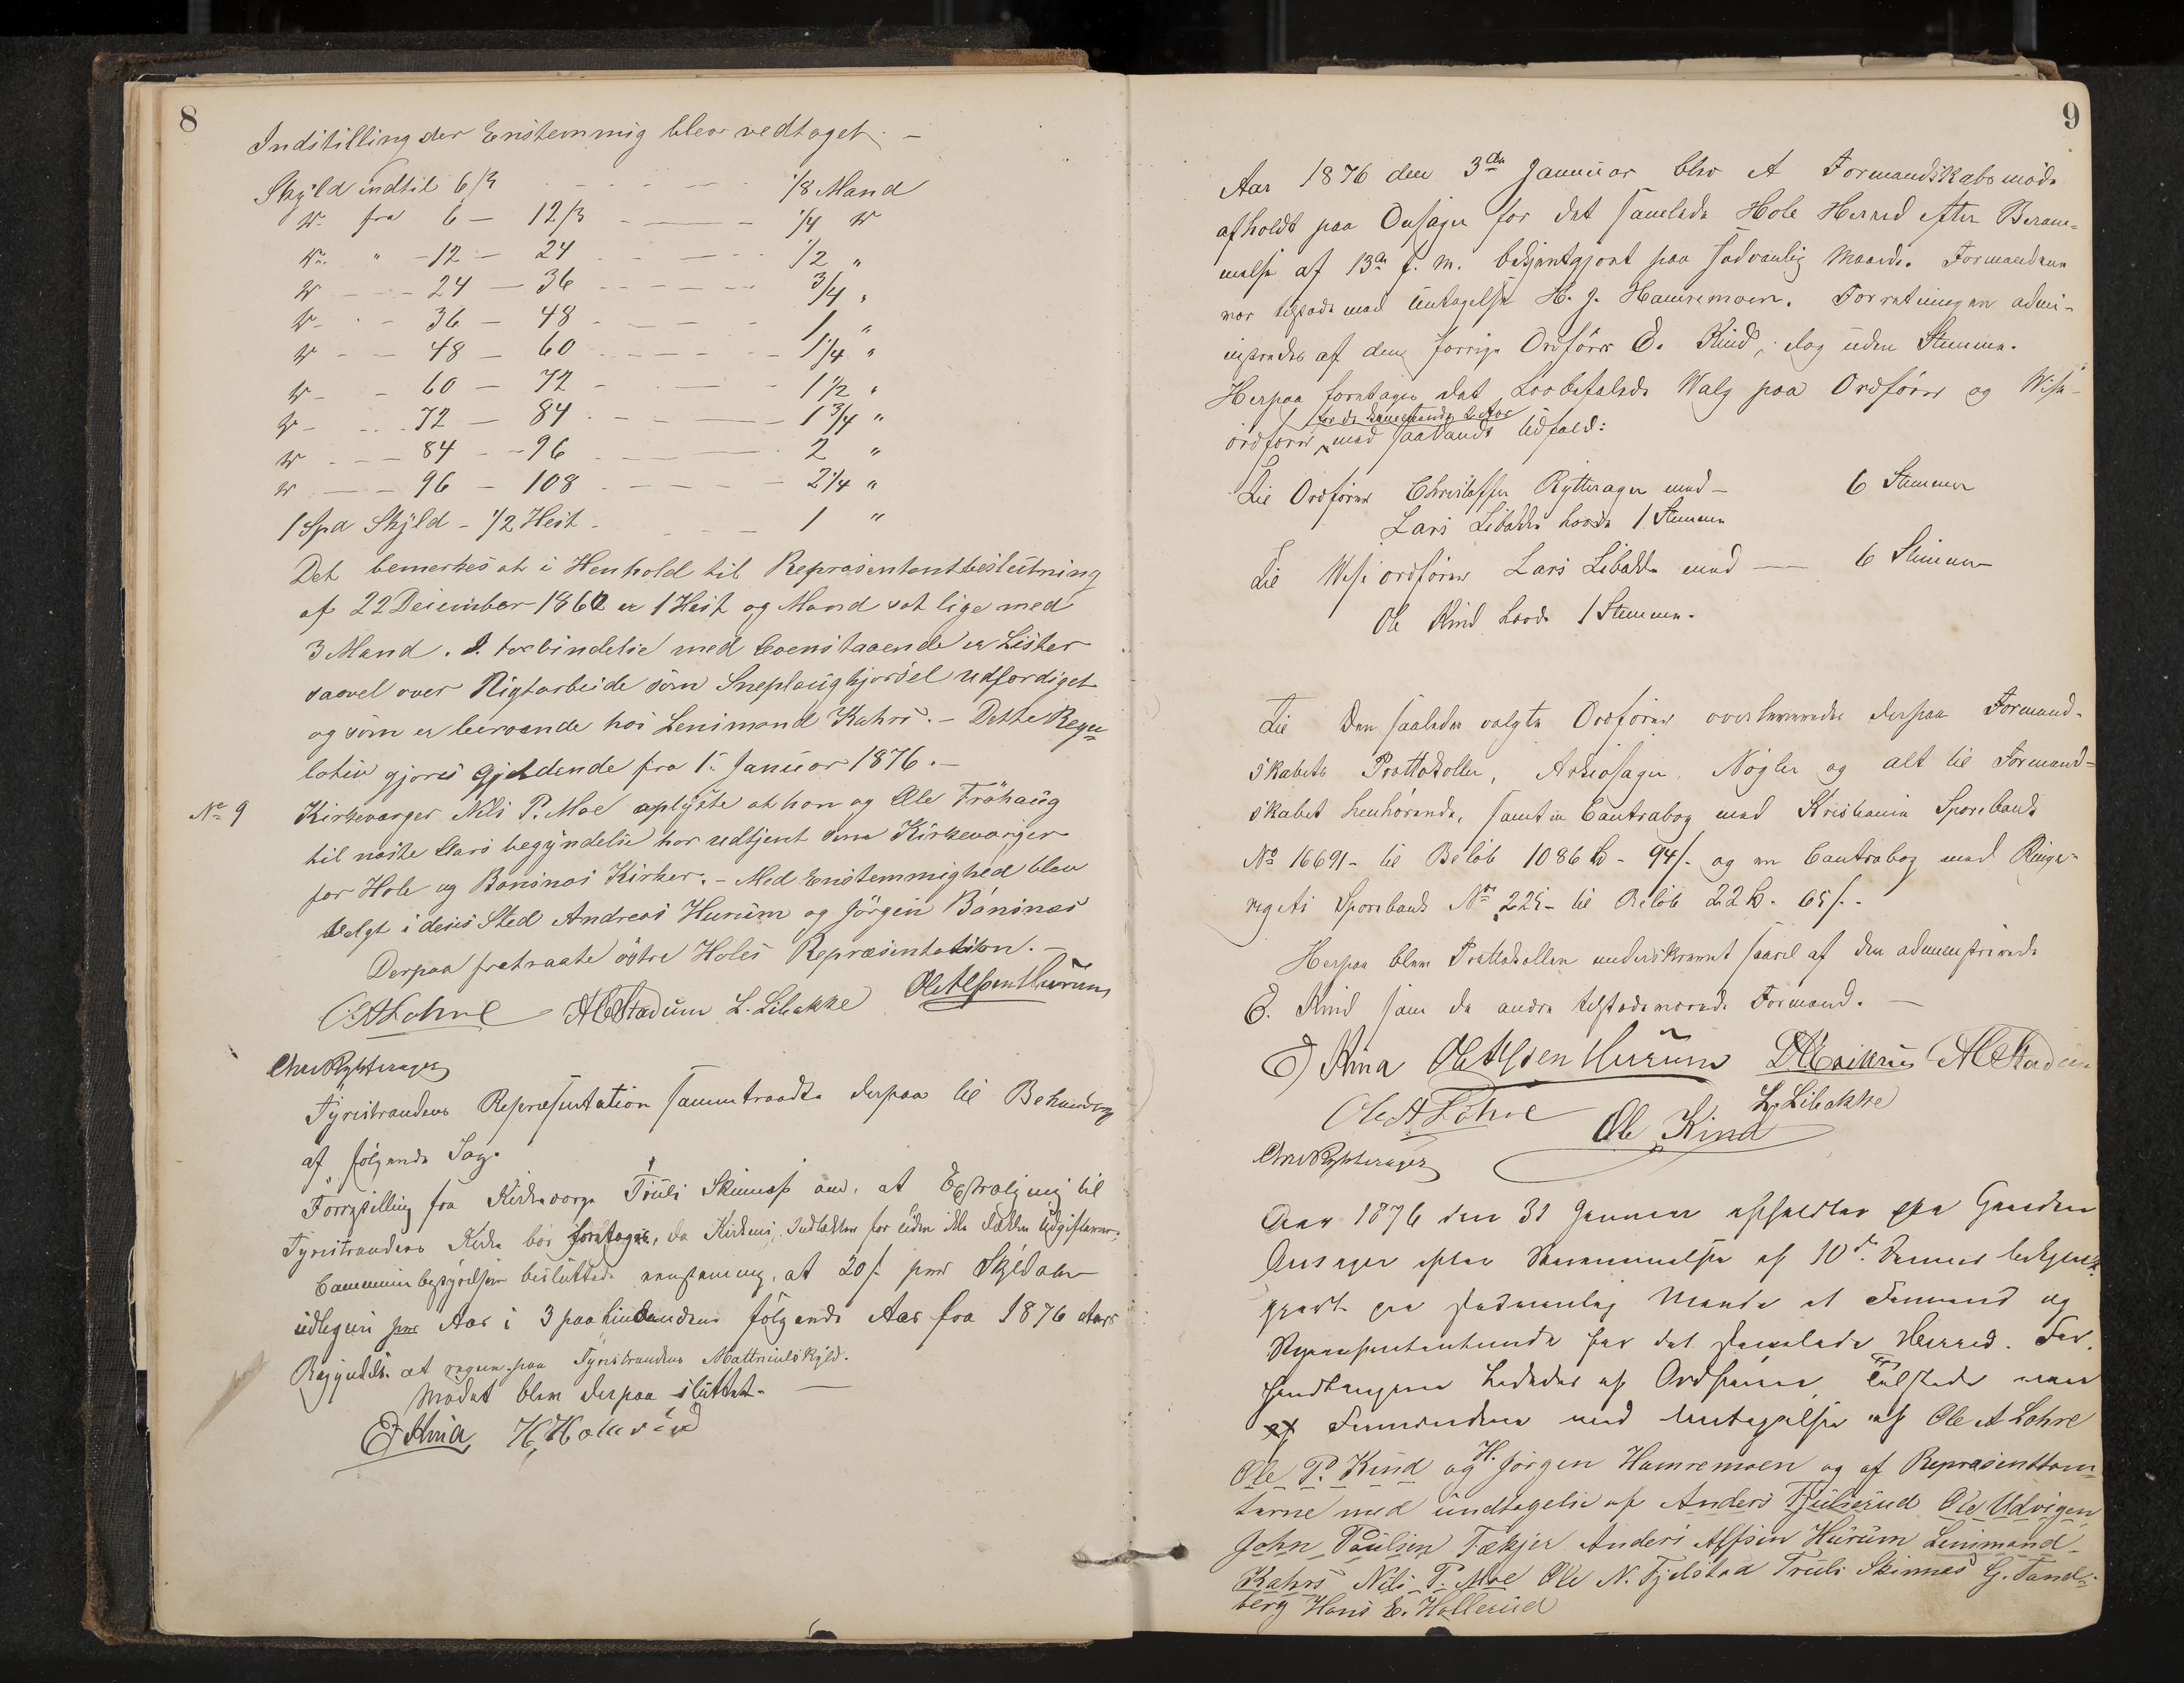 8
Indstilling der Enstemmig blev vedtaget. –
Skyld indtil 6 ß 1/8 Mand
" fra 6 – 12 ß 1/4 "
" " – 12 – 24 1/2 "
" – 24 – 36 3/4 "
" – 36 – 48 1 "
" – 48 – 60 1 1/4 "
" – 60 – 72 1 1/2 "
" – 72 – 84 1 3/4 "
" – 84 – 96 2 "
" – 96 – 108 2 1/4 "
1 Spd Skyld – 1/2 Hest – 1 "
Det bemerkes at i Henhold til Repræsentantbeslutning
af 22 December 1860 er 1 Hest og Mand sat lige med
3 Mand. I forbindelse med ovenstaaende er Lister
saavel over Pligtarbeide som Sneplougkjørsel udfærdiget
og som er beroende hos Lensmand Kahrs. – Dette Regu=
lativ gjøres gjeldende fra 1. Januar 1876. –
No 9 Kirkeværger Nils P. Moe oplyste at han og Ole Frøhaug
til næste Aars begyndelse har udtjent som Kirkeværger
for Hole og Bønsnæs Kirker. – Med Enstemmighed blev
valgt i deres Sted Andreas Hurum og Jørgen Bönsnæs
Derpaa fratraate östre Holes Repræsentation. –
O. A. Lohre A C Stadum L. Libakke Ole Alfsen Hurum
Chr Rytterager
Tyristrandens Repræsentation sammentraadte derpaa til Behandling
af følgende Sag.
Forestilling fra Kirkeværge Truls Skinnes om, at Ligning til
Tyristrandens Kirke bør foretages, da Kirkens Indtekter for tiden ikke dække Udgifterne.
Communebestyrelsen besluttede eenstemmig, at 20 ß pr Skyldaler
udlignes pr Aar i 3 paa hinandens følgende Aar fra 1876 Aars
Begyndelse at regne paa Tyristrandens Matrikulskyld.
Mødet blev derpaa sluttet. –
E Kind H. Hollerud
9
Aar 1876 den 3de Januar blev et Formandskabsmøde
afholdt paa Onsager for det samlede Hole Herred efter Beram=
melse af 13de f. M. bekjentgjort paa sædvanlig Maade. Formændene
var tilstede med Untagelse H. J. Hamremoen. Forretningen admi=
nistredes af den forrige Ordfører E. Kind, dog uden Stemme.
Herpaa foretages det Lovbefalede Valg paa Ordfører og Wise=
for de kommende Aar
ordfører med saadandt Udfald:
Til Ordfører Christoffer Rytterager med – 6 Stemmer
Lars Libakke havde 1 Stemme
Til Wiseordfører Lars Libakke med – 6 Stemmer
Ole Kind havde 1 Stemme.
Til Den saaledes valgte Ordfører overleveredes derpaa Formand=
skabets Prottokoller, Arkivsager, Nøgler og alt til Formand=
skabet henhørende, samt en Contrabog med Kristiania Sparebank
No 16691 – til Beløb 1086 – 94 ß. og en Contrabog med Ringe=
riget Sparebank No 225 – til Beløb 22 – 65 ß. –
Herpaa blev Prottokollen underskrevet saavel af den administrerende
E. Kind som de andre tilstedeværende Formænd. –
E Kind Ole Alfsen Hurum A C Stadum
Ole A Lohre Ole Kind L. Libakke
Chr Rytterager
Aar 1876 den 31 Januar afholdtes paa Gaarden
Onsager efter Berammelse af 10de Januar bekjent=
gjort paa sædvanlig Maade et Formand og
Repræsentantmøde for det samlede Herred. For=
handlingerne lededes af Ordføreren, Tilstede var
af Formændene med Untagelse af Ole A Lohre
Ole P. Kind og H. Jørgen Hamremoen og af Repræsentan=
terne med undtagelse af Anders Fjulsrud Ole Udvigen,
John Paulsen Tækjer Anders Alfsen Hurum Lensmand
Kahrs Nils P. Moe Ole N. Fjelstad Truls Skinnes G. Tand=
berg Hans E. Hollerud